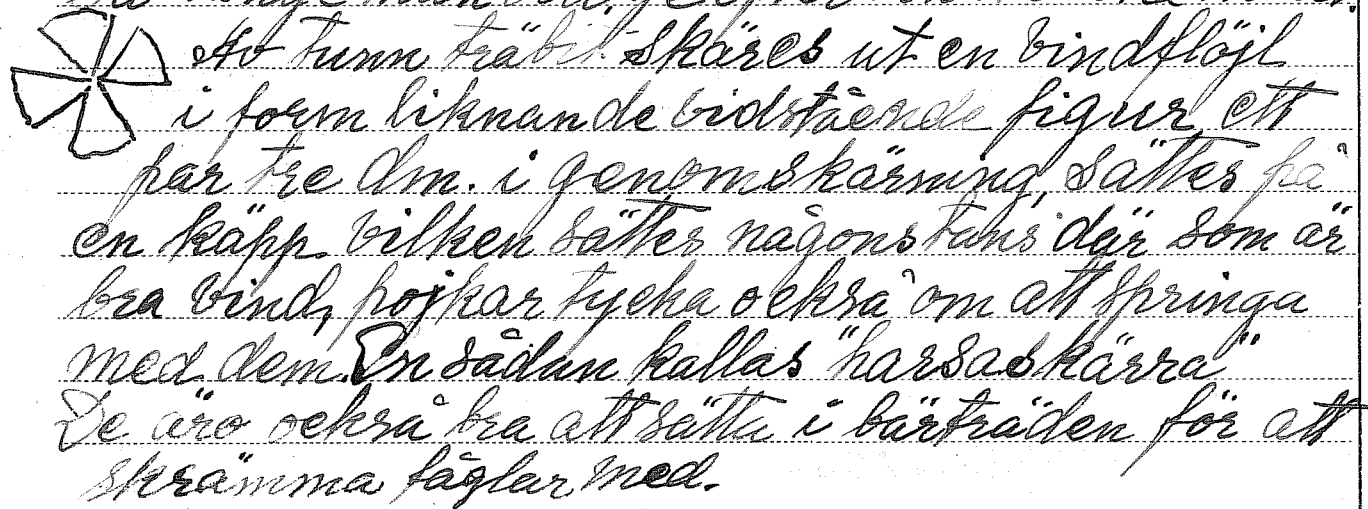 Av tunn träbit skäres ut en vindflöjl
i form liknande vidstående figur, ett
par tre dm. i genomskärning, sättes på
en käpp vilken sättes någonstans där som är
bra vind, pojkar tycka också om att springa
med dem. En sådan kallas "harsaskärra"
De äro också bra att sätta i bärträden för att
skrämma fåglar med.